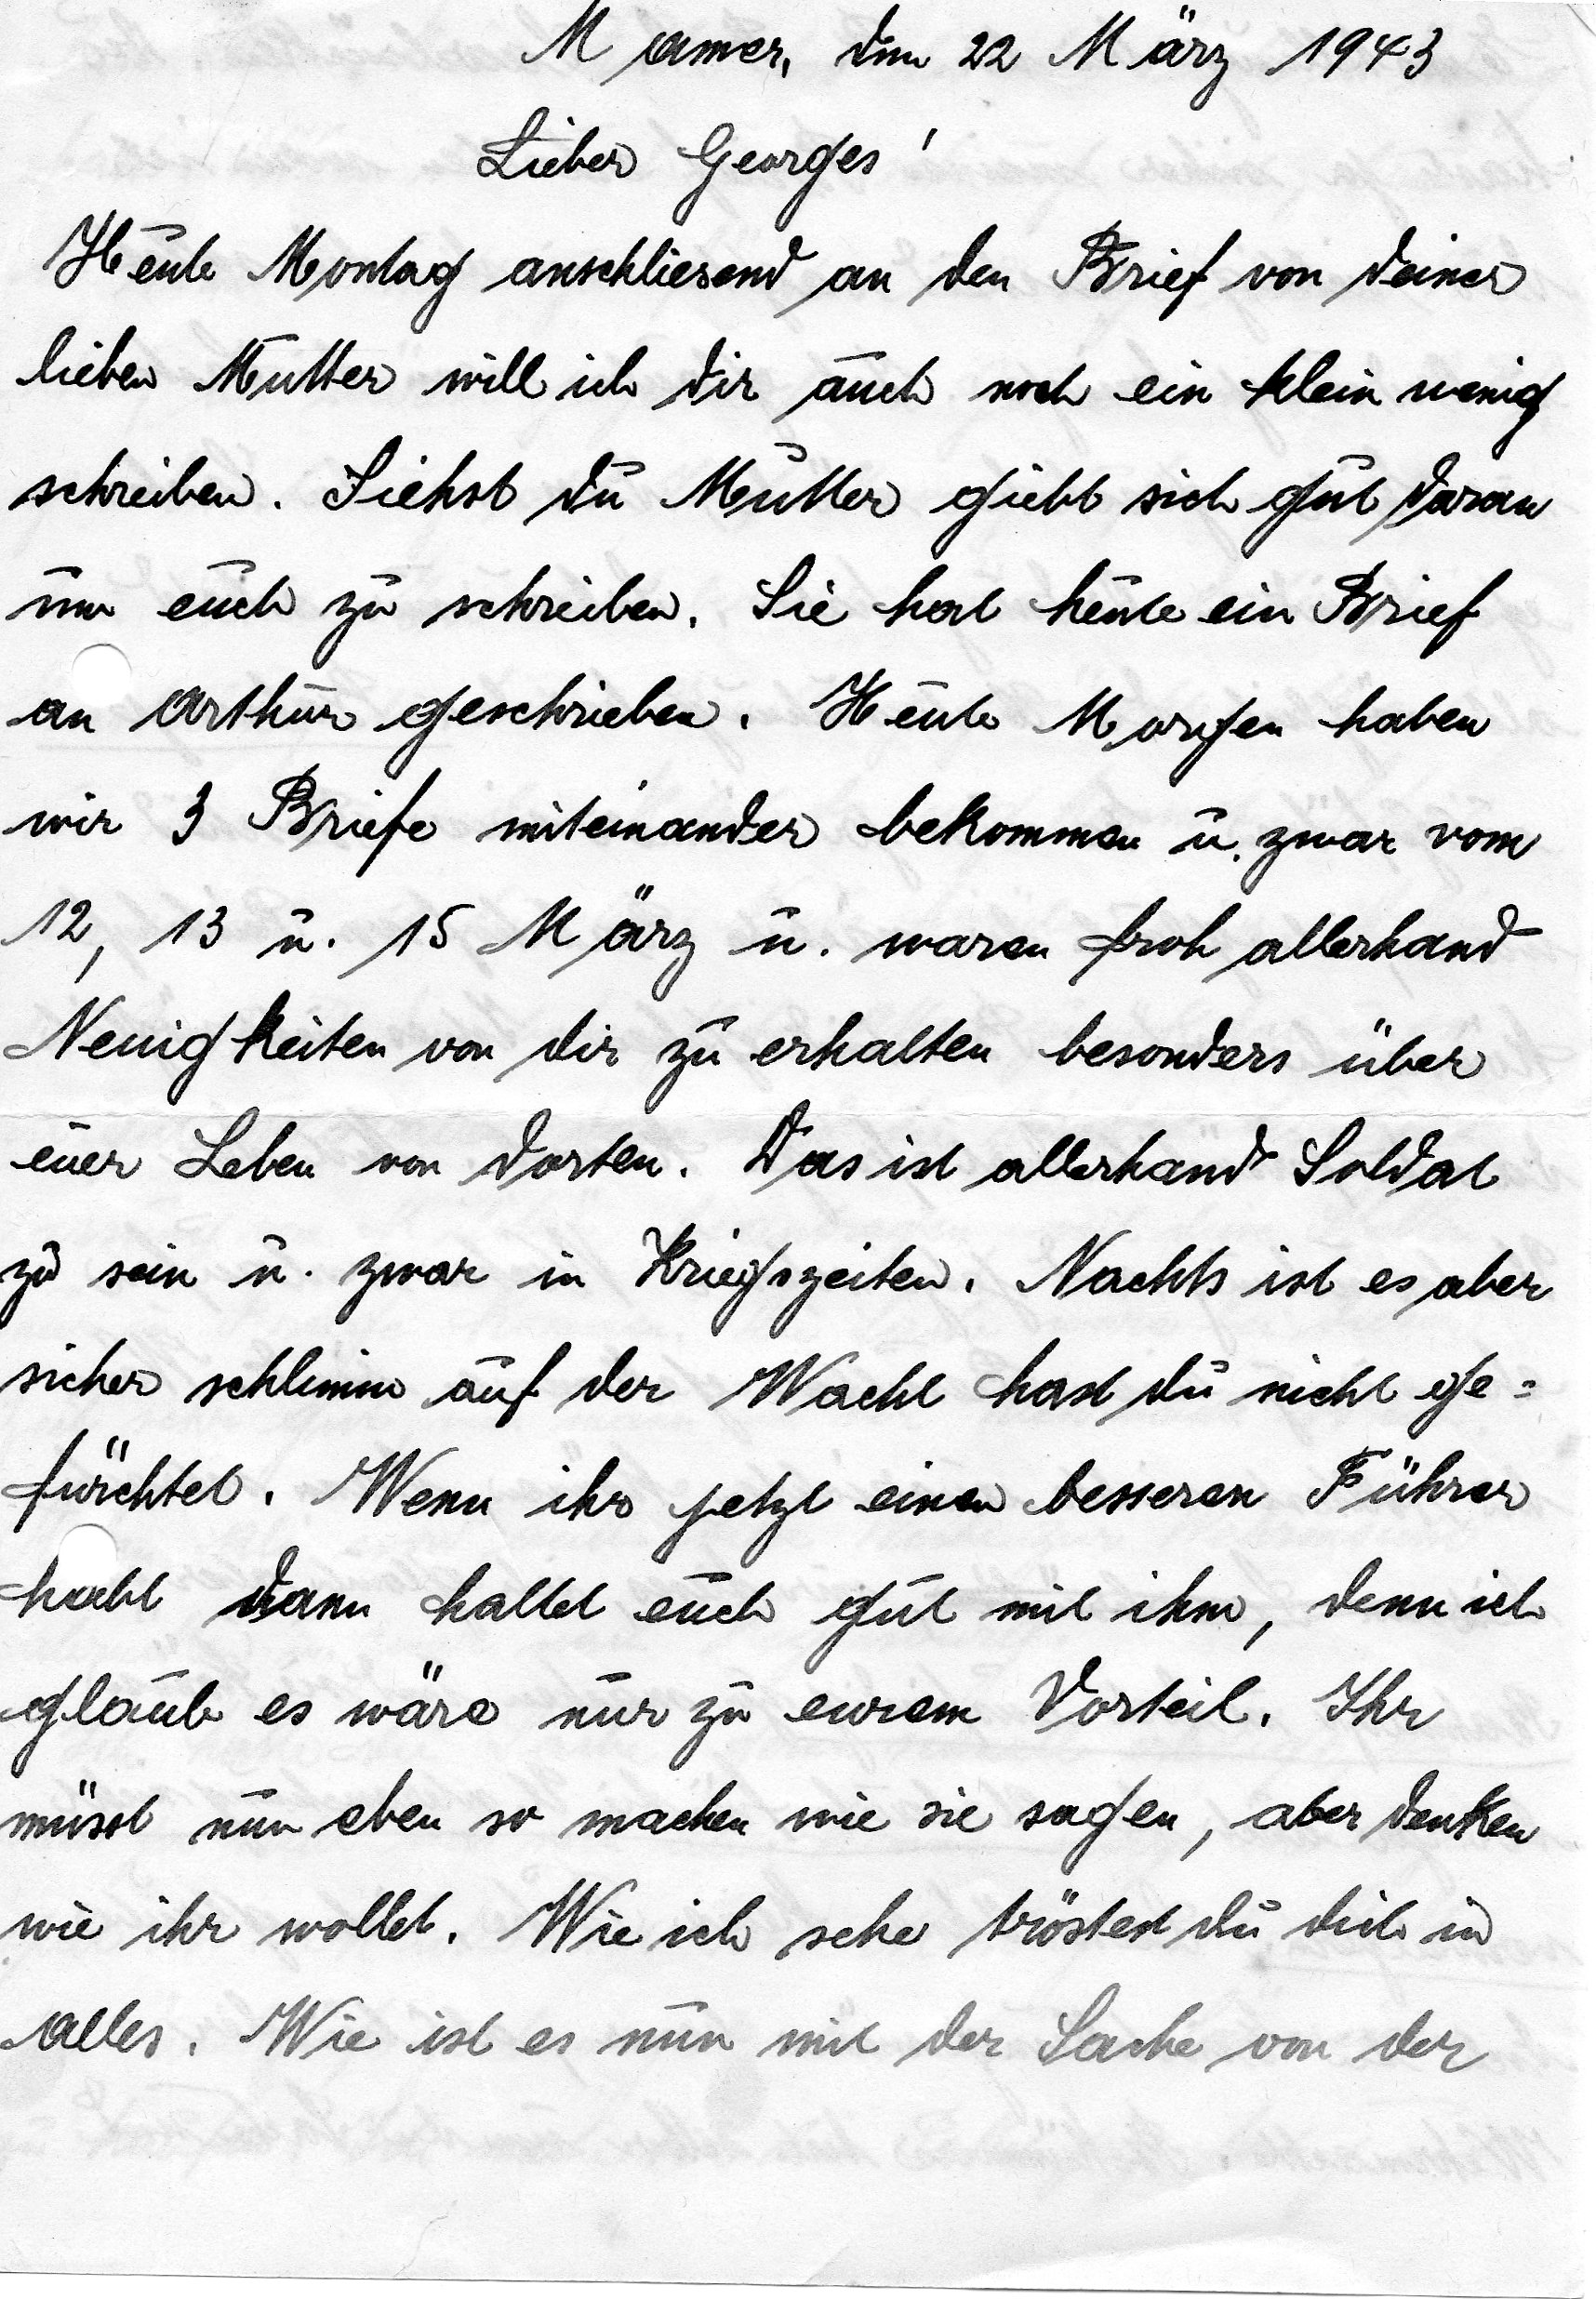 Mamer, den 22 März 1943
Lieber Georges!
Heute Montag anschliesend an den Brief von deiner
lieben Mutter will ich dir auch noch ein klein wenig
schreiben. Siehst du Mutter giebt sich gut daran
um euch zu schreiben. Sie hat heute ein Brief
an Arthur geschrieben. Heute Morgen haben
wir 3 Briefe miteinander bekommen u. zwar vom
12, 13 u. 15 März u. waren froh allerhand
Neuigkeiten von dir zu erhalten besonders über
euer Leben von dorten. Das ist allerhand Soldat
zu sein u. zwar in Kriegszeiten. Nachts ist es aber
sicher schlimm auf der Wacht hast du nicht ge=
fürchtet. Wenn ihr jetzt einen besseren Führer
habt dann haltet euch gut mit ihm, denn ich
glaube es wäre nur zu eurem Vorteil. Ihr
müsst nun eben so machen wie sie sagen, aber denken
wie ihr wollet. Wie ich sehe tröstest du dich in
alles. Wie ist es nun mit der Sache von der